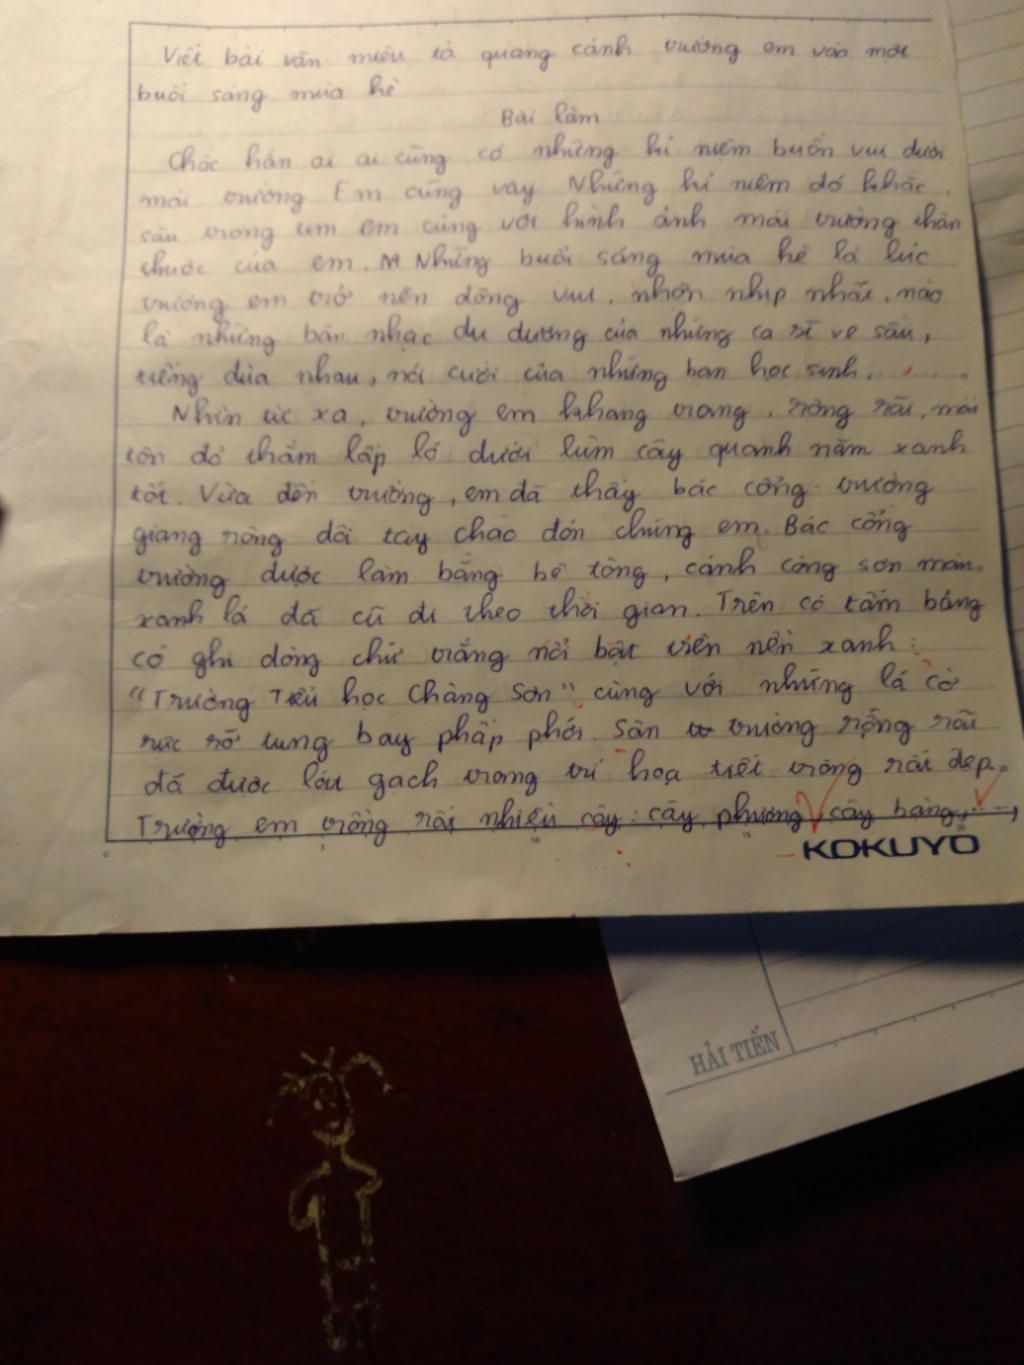 Viết bài văn miêu tả quang cảnh trường em vào một
buổi sáng mùa hè
Bài làm
Chắc hẳn ai ai cũng có những kỉ niệm buồn vui dưới
mái trường Em cũng vậy Những kỉ niệm đó khắc
sâu trong tim em cùng với hình ảnh mái trường thân
thuộc của em. Những buổi sáng mùa hè là lúc
trường em trở nên đông vui, nhộn nhịp nhất, nào
là những bản nhạc du dương của những ca sĩ ve sầu,
tiếng đùa nhau, nói cười của những bạn học sinh.......
Nhìn từ xa, trường em khang trang, rộng rãi, mái
tôn đỏ thắm lấp ló dưới lùm cây quanh năm xanh
tốt. Vừa đến trường, em đã thấy bác cổng trường
giang rộng đôi tay chào đón chúng em. Bác cổng
trường được làm bằng bê tông, cánh cổng sơn màu
xanh lá đã cũ đi theo thời gian. Trên có tấm bảng
có ghi dòng chữ trắng nổi bật trên nền xanh:
"Trường Tiểu học Chàng Sơn" cùng với những lá cờ
rực rỡ tung bay phấp phới. Sân trường rộng rãi
đã được lát gạch trang trí hoạ tiết trông rất đẹp.
Trường em trồng rất nhiều cây: cây phượng, cây bàng,...,
KOKUYO
HẢI TIẾN